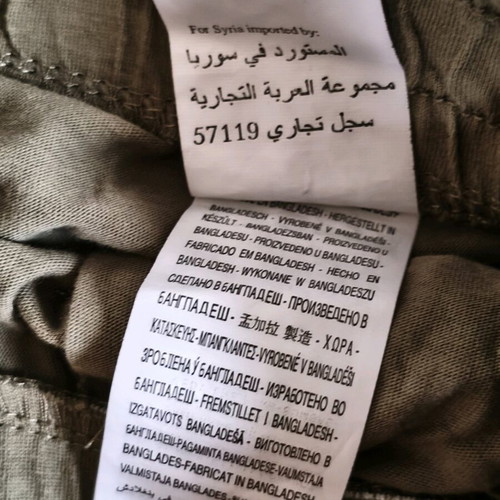 For Syria imported by:
المستورد في سوريا
مجموعة العربة التجارية
سجل تجاري 57119
BANGLADESH - HERGESTELLT IN
BANGLADESCH - VYROBENÉ V BANGLADÉŠI -
KÉSZÜLT - BANGLADEZSBAN - PROIZVEDENO U
BANGLADEŠU - PROIZVEDENO U BANGLADEŠU -
FABRICADO EM BANGLADESH - HECHO EN
BANGLADESH - WYKONANE W BANGLADESZU
СДЕЛАНО В БАНГЛАДЕШ - ПРОИЗВЕДЕНО В
БАНГЛАДЕШ - 孟加拉 製造 - ΧΩΡΑ -
ΚΑΤΑΣΚΕΥΗΣ - ΜΠΑΝΓΚΛΑΝΤΕΣ - VYROBENÉ V BANGLADÉŠI
ЗРОБЛЕНА Ў БАНГЛАДЕШ - ИЗРАБОТЕНО ВО
БАНГЛАДЕШ - FREMSTILLET I BANGLADESH -
IZGATAVOTS BANGLADEŠĀ - ВИГОТОВЛЕНО В
БАНГЛАДЕШ - PAGAMINTA BANGLADEŠE - VALMISTAJA
BANGLADES - FABRICAT IN BANGLADESH -
VALMISTAJA BANGLADES -